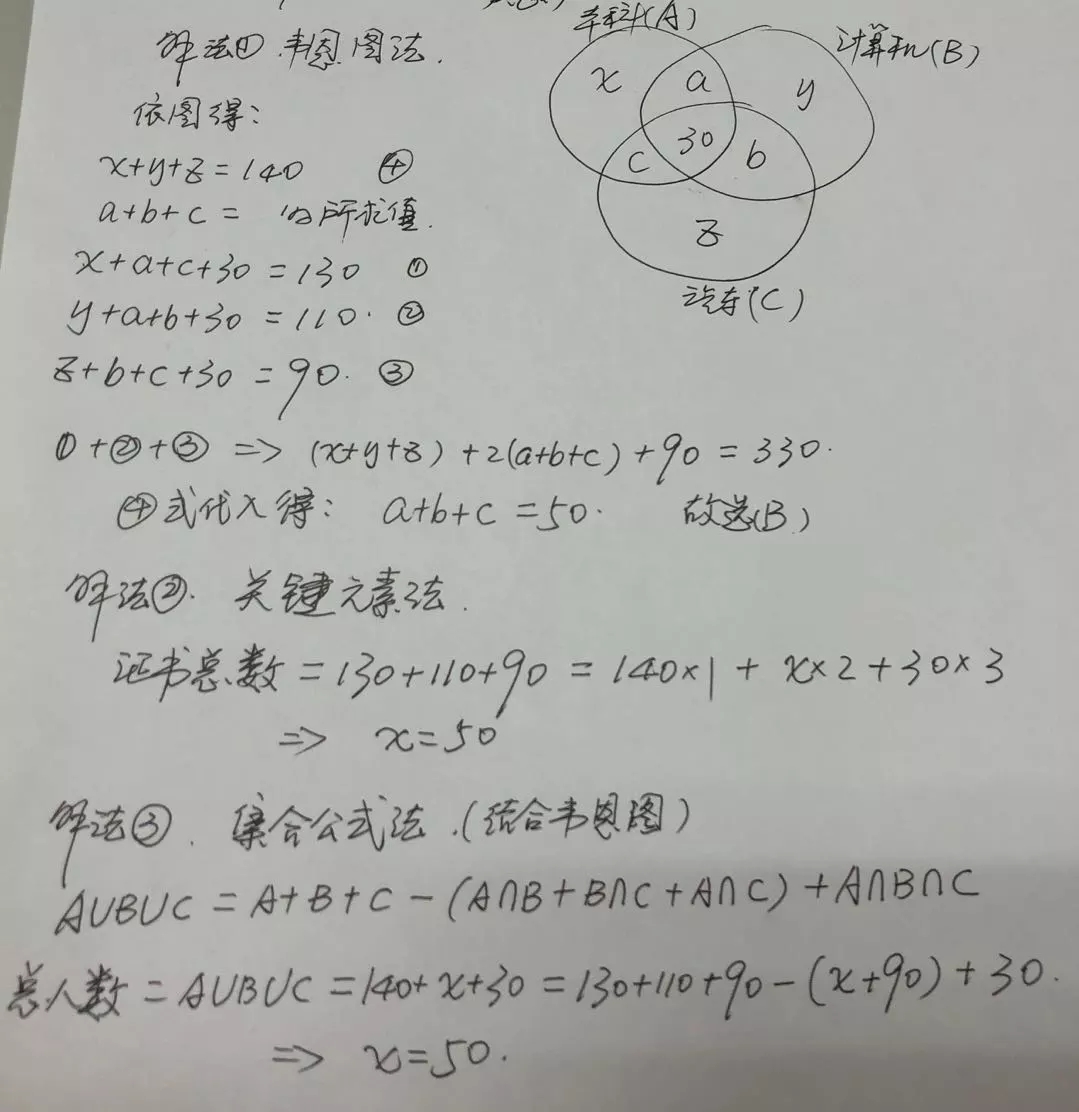 本科(A)
解法① 韦恩图法.
计算机(B)
x a y
依图得:
30
c b
x+y+z=140 ④
a+b+c= 为所求值.
z
x+a+c+30=130 ①
汽车(C)
y+a+b+30=110. ②
z+b+c+30=90. ③
①+②+③ => (x+y+z)+2(a+b+c)+90=330.
④式代入得: a+b+c=50. 故选(B)
解法②. 关键元素法.
证书总数=130+110+90=140×1+x×2+30×3
=> x=50
解法③. 集合公式法.(结合韦恩图)
A∪B∪C=A+B+C-(A∩B+B∩C+A∩C)+A∩B∩C
总人数=A∪B∪C=140+x+30=130+110+90-(x+90)+30.
=> x=50.